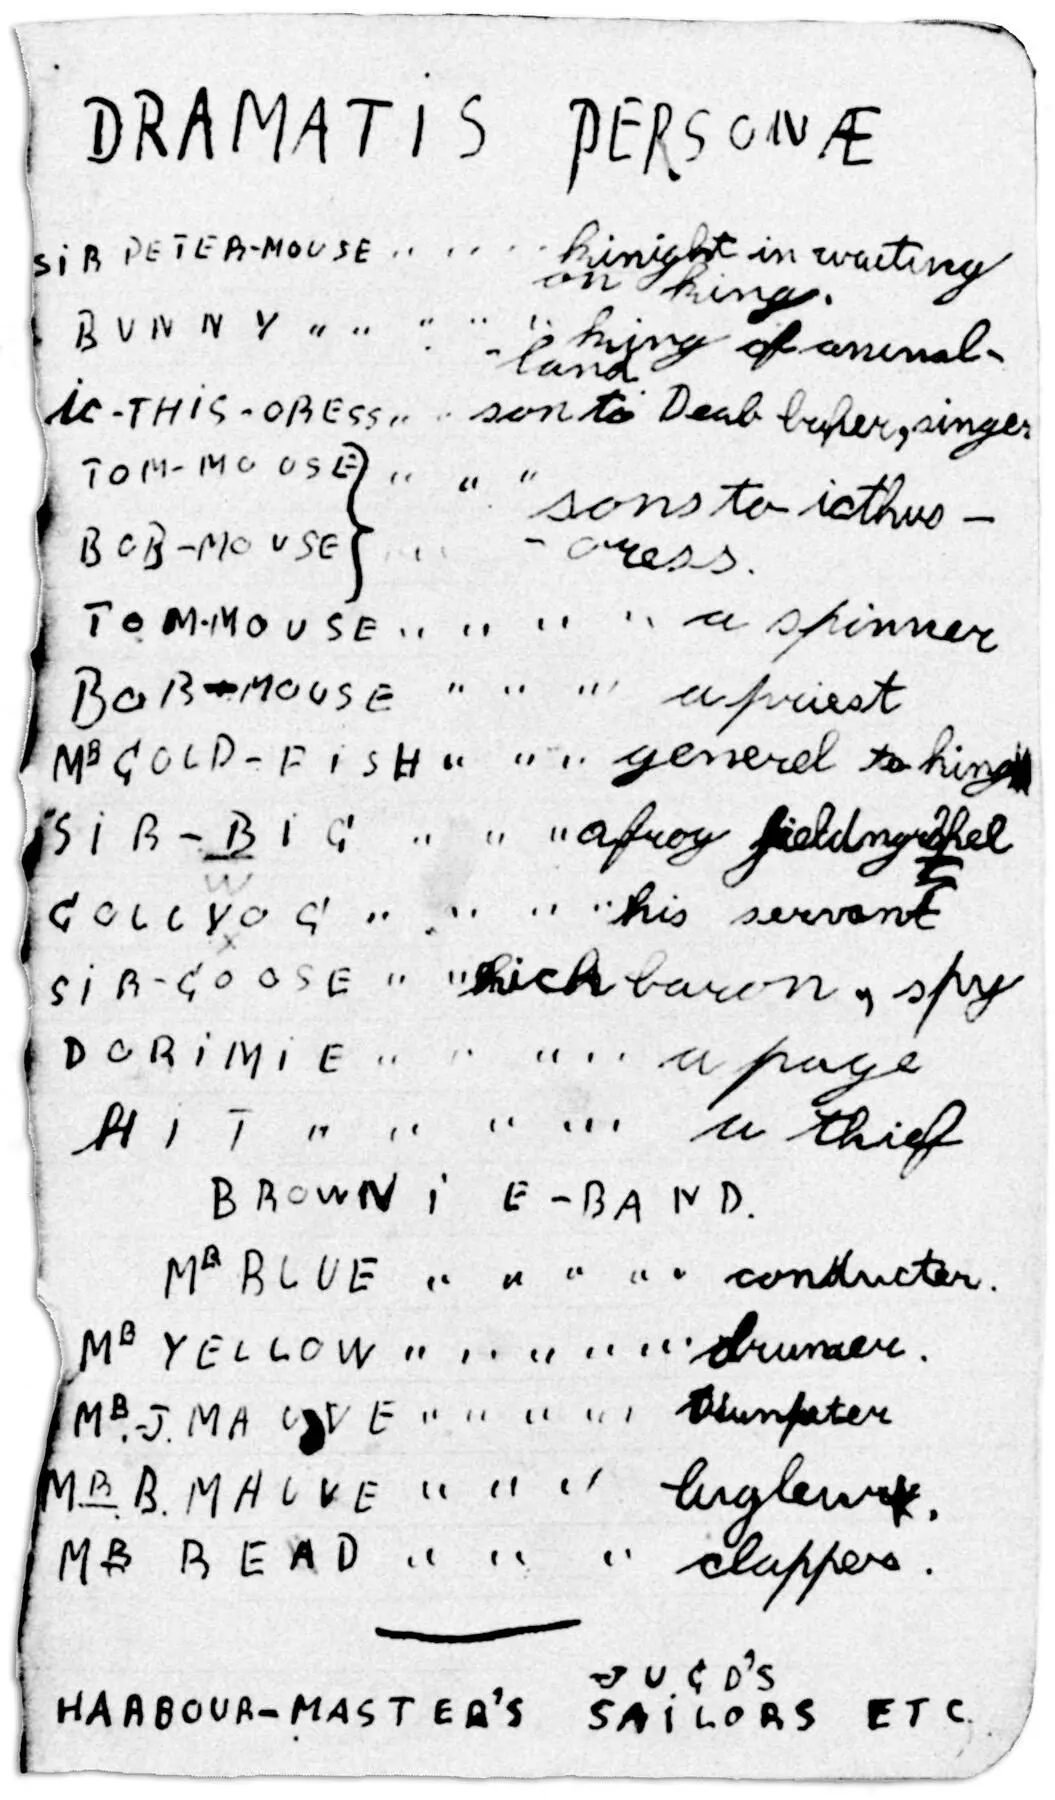 DRAMATIS PERSONÆ
SIR PETER-MOUSE " " " " kinight in waiting
on king.
BUNNY " " " " " king of animal-
-land
IC-THIS-ORESS " " son to Deab , singer
TOM-MOUSE " " " sons to icthus-
BOB-MOUSE " " -oress.
TOM-MOUSE " " " " a spinner
BOB-MOUSE " " " a priest
MR GOLD-FISH " " " generel to king
SIR-BIG " " " a frog
GOLLYOG " " " " his servant
W
X
SIR-GOOSE " " baron, spy
DORIMIE " " " " a page
HIT " " " " a thief
BROWNIE-BAND.
MR BLUE " " " " " conducter.
MR YELLOW " " " " " drumer.
MR.J. MAUVE " " " " Trumpeter
MR B. MAUVE " " "
MR READ " " " clappers.
JUGD'S
HARBOUR-MASTER'S SAILORS ETC